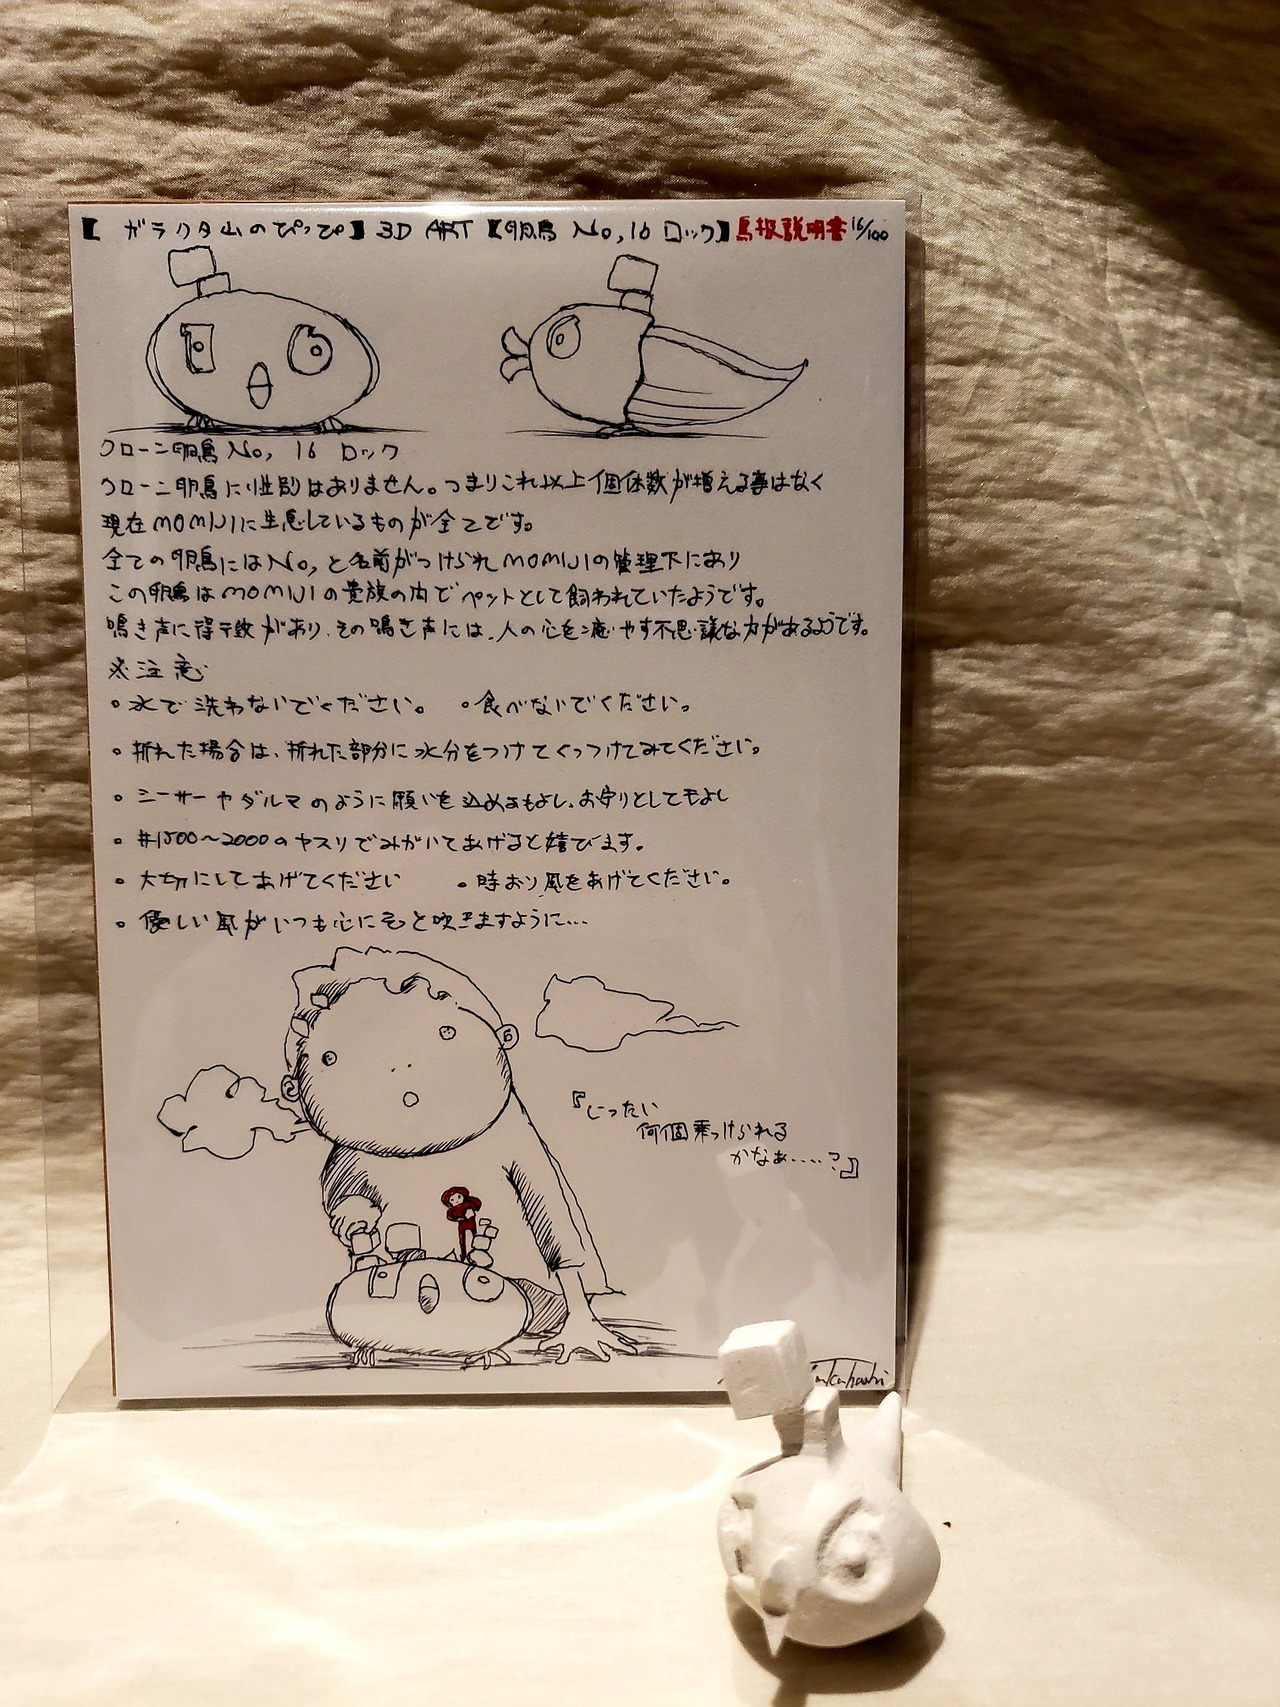 【ガラクタ山のぴっぴ】3D ART【卵鳥 No,16 ロック】鳥扱説明書 16/100
クローン卵鳥No, 16 ロック
クローン卵鳥に性別はありません。つまりこれ以上個体数が増える事はなく
現在MOMIJIに生息しているものが全てです。
全ての卵鳥にはNo,と名前がつけられMOMIJIの管理下にあり
この卵鳥はMOMIJIの貴族の内でペットとして飼われていたようです。
鳴き声に特徴があり、その鳴き声には、人の心を癒やす不思議な力があるようです。
※注意
・水で洗わないでください。 ・食べないでください。
・折れた場合は、折れた部分に水分をつけてくっつけてみてください。
・シーサーやダルマのように願いを込めるもよし、お守りとしてもよし
・#1500〜2000のヤスリでみがいてあげると喜びます。
・大切にしてあげてください ・時おり風をあげてください。
・優しい風がいつも心にそっと吹きますように...
『じったい
何個乗っけられる
かなぁ.....?』